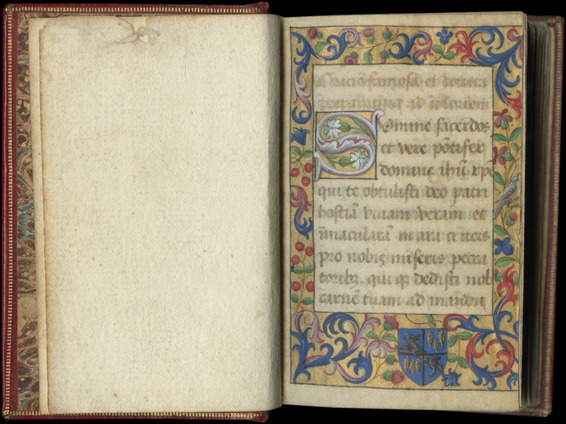 SVmme sacerdos
et vere põtifex
domine ihũ xp̃e
qui te obtulisti deo patri
hostiã vivam veram et
ĩmaculatã in ara crucis
pro nobis miseris pecca
toribꝰ. qui q dedisti nob
carnẽ tuam ad mandu